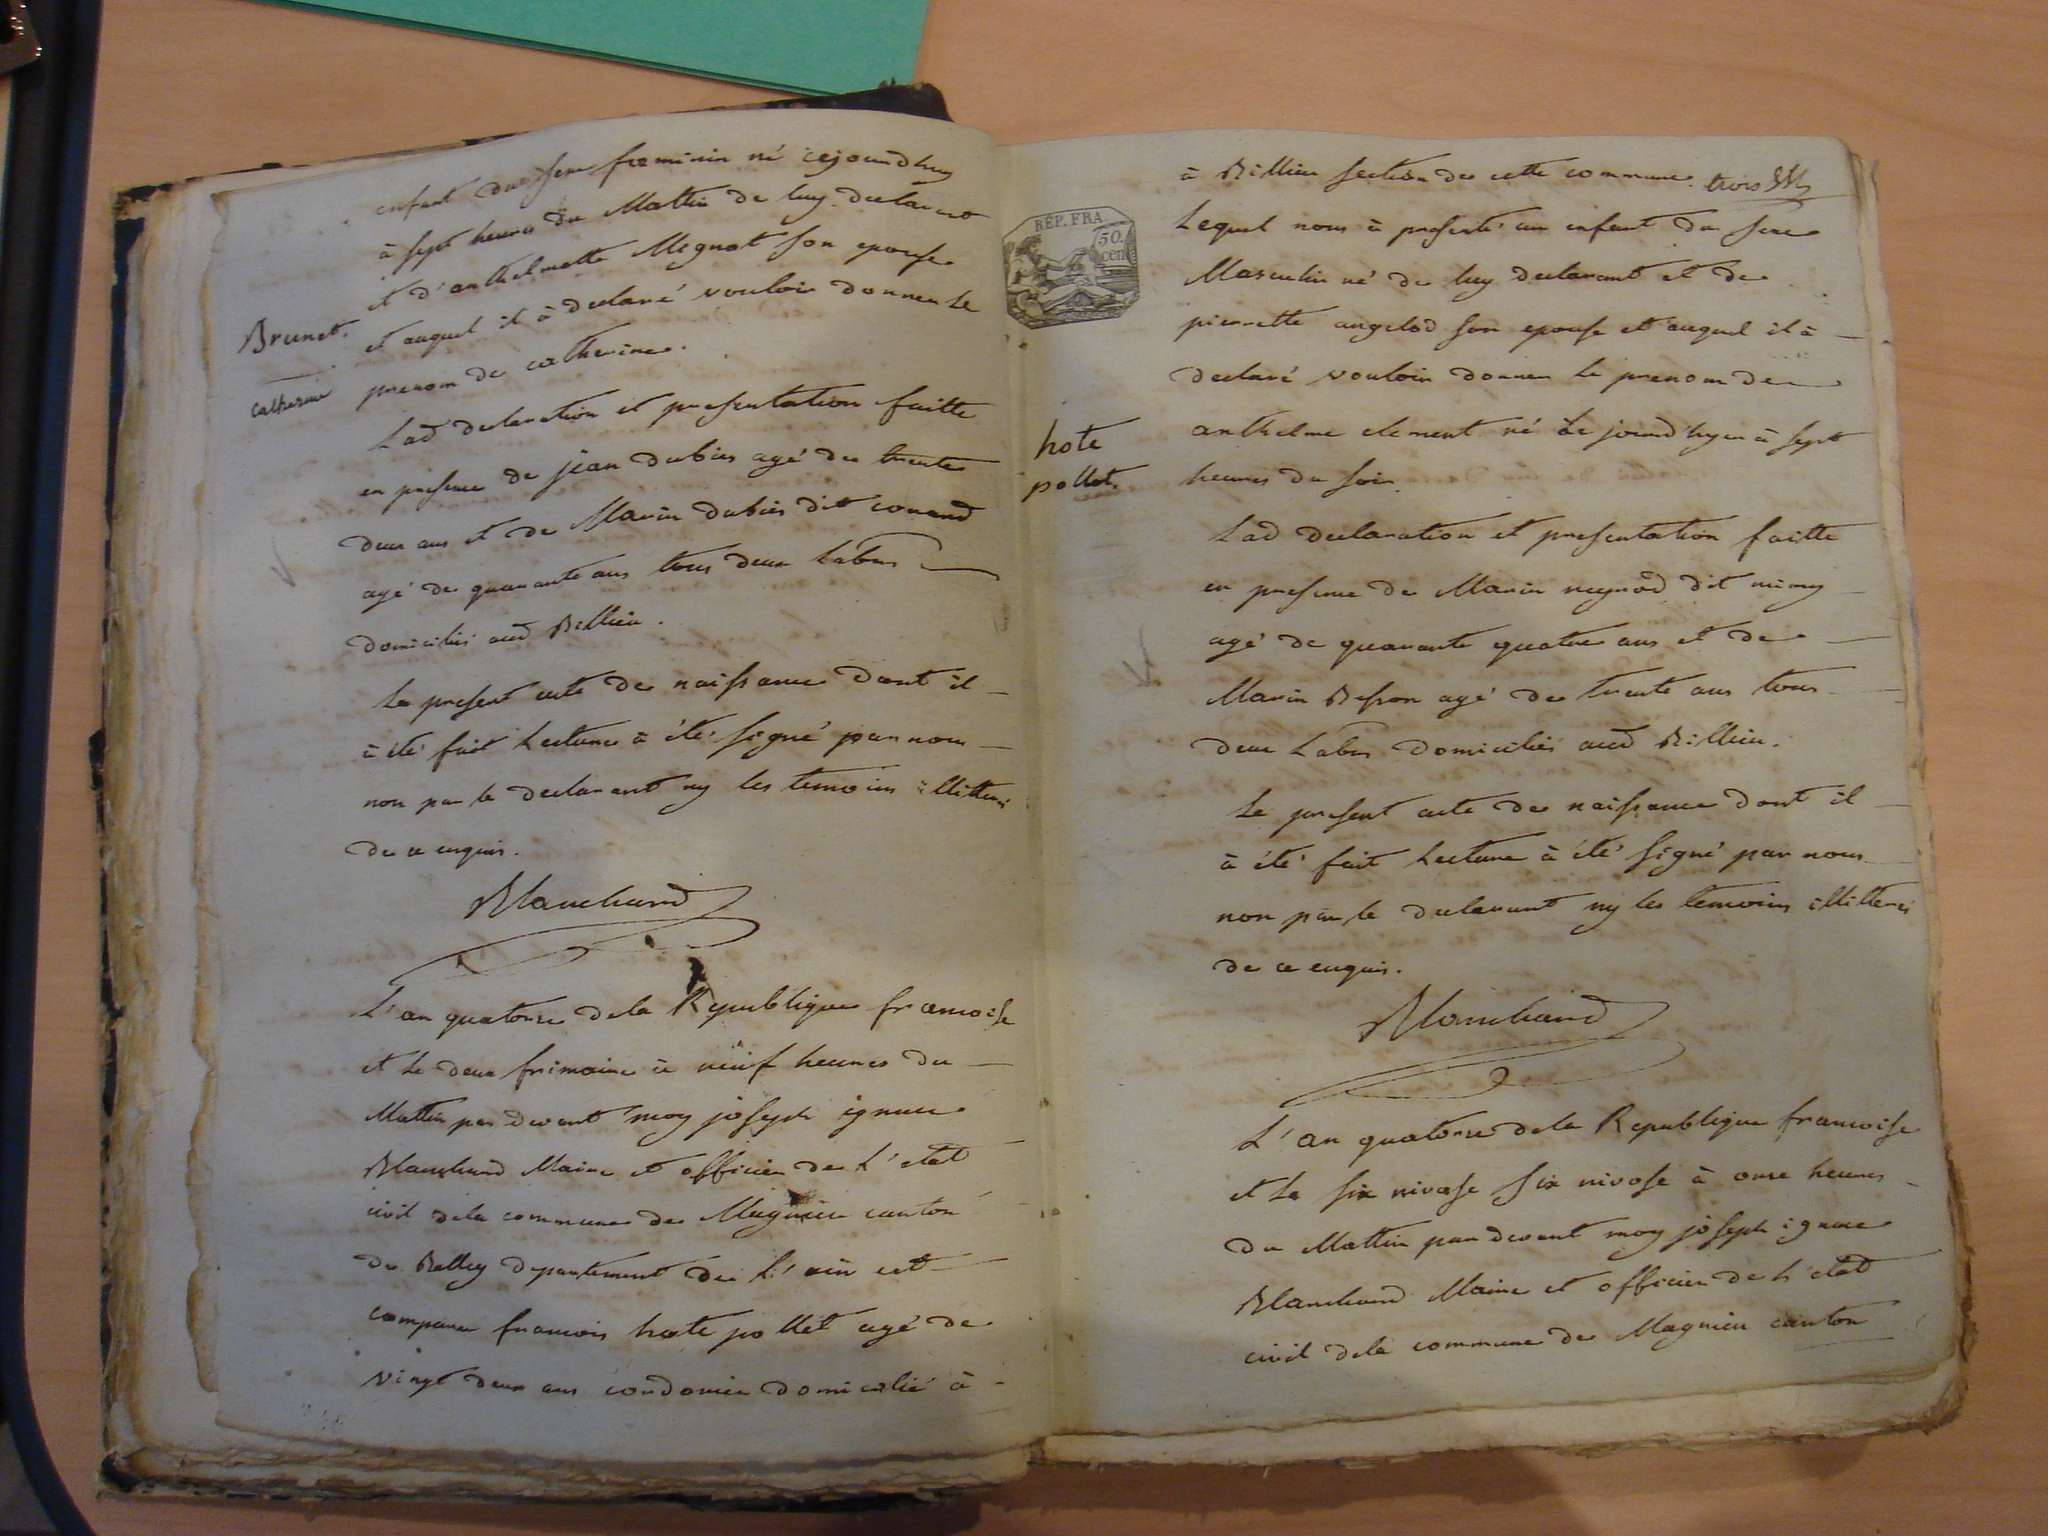 enfant du sexe foeminin né cejourdhuy
à sept heures du Mattin de luy declarant
et d'anthelmette Mignot son epouse
et auquel il à declaré vouloir donner le
prenom de catherine.
Brunet.
catherine
Lad declaration et presentation faitte
en presence de jean dubius agé de trente
deux ans et de Marin dubius dit
agé de quarante ans tous deux Labrs
domiciliés aud Billieu.
Le present acte de naissance dont il
à été fait Lecture à été signé par nous
non par le declarant ny les temoins illitterés
de ce enquis.
Blanchard
L'an quatorze dela Republique francoise
et le deux frimaire à neuf heures du
Mattin par devant moy joseph ignace
Blanchard Maire et officier de l'etat
civil dela commune de Magnieu canton
de Belley departement de L'ain est
comparu francois hote pollet agé de
vingt deux ans cordonier domicilié à
REP. FRA.
50 cen
à Billieu section de cette commune. trois
Lequel nous à presenté un enfant du sexe
Masculin né de luy declarant et de
pierrette angelod son epouse et auquel il à
declaré vouloir donner le prenom de
anthelme clement né Le jourd'hyer à sept
heures du soir
hote
pollet.
Lad declaration et presentation faitte
en presence de Marin reynod dit mimy
agé de quarante quatre ans et de
Marin Besson agé de trente ans tous
deux Labrs domiciliés aud Billieu.
Le present acte de naissance dont il
à été fait Lecture à été signé par nous
non par le declarant ny les temoins illitterés
de ce enquis.
Blanchard
L'an quatorze dela Republique francoise
et le six nivose six nivose à onze heures
du Mattin par devant moy joseph ignace
Blanchard Maire et officier de l'etat
civil dela commune de Magnieu canton